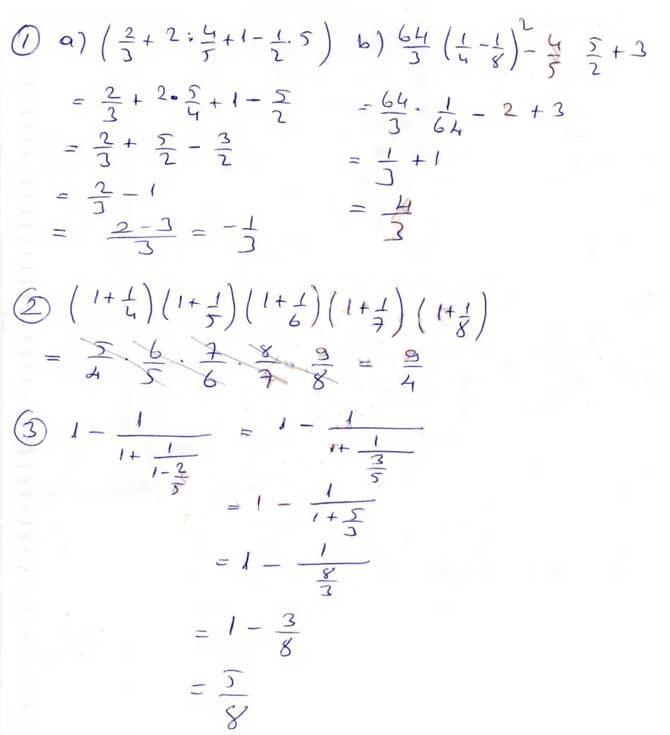 ① a) (2/3 + 2 : 4/5 + 1 - 1/2 · 5)
= 2/3 + 2 · 5/4 + 1 - 5/2
= 2/3 + 5/2 - 3/2
= 2/3 - 1
= (2 - 3)/3 = -1/3
b) 64/3 (1/4 - 1/8)² - 4/5 5/2 + 3
= 64/3 · 1/64 - 2 + 3
= 1/3 + 1
= 4/3
② (1 + 1/4) (1 + 1/5) (1 + 1/6) (1 + 1/7) (1 + 1/8)
= 5/4 · 6/5 · 7/6 · 8/7 · 9/8 = 9/4
③ 1 - 1/(1 + 1/(1 - 2/5)) = 1 - 1/(1 + 1/(3/5))
= 1 - 1/(1 + 5/3)
= 1 - 1/(8/3)
= 1 - 3/8
= 5/8